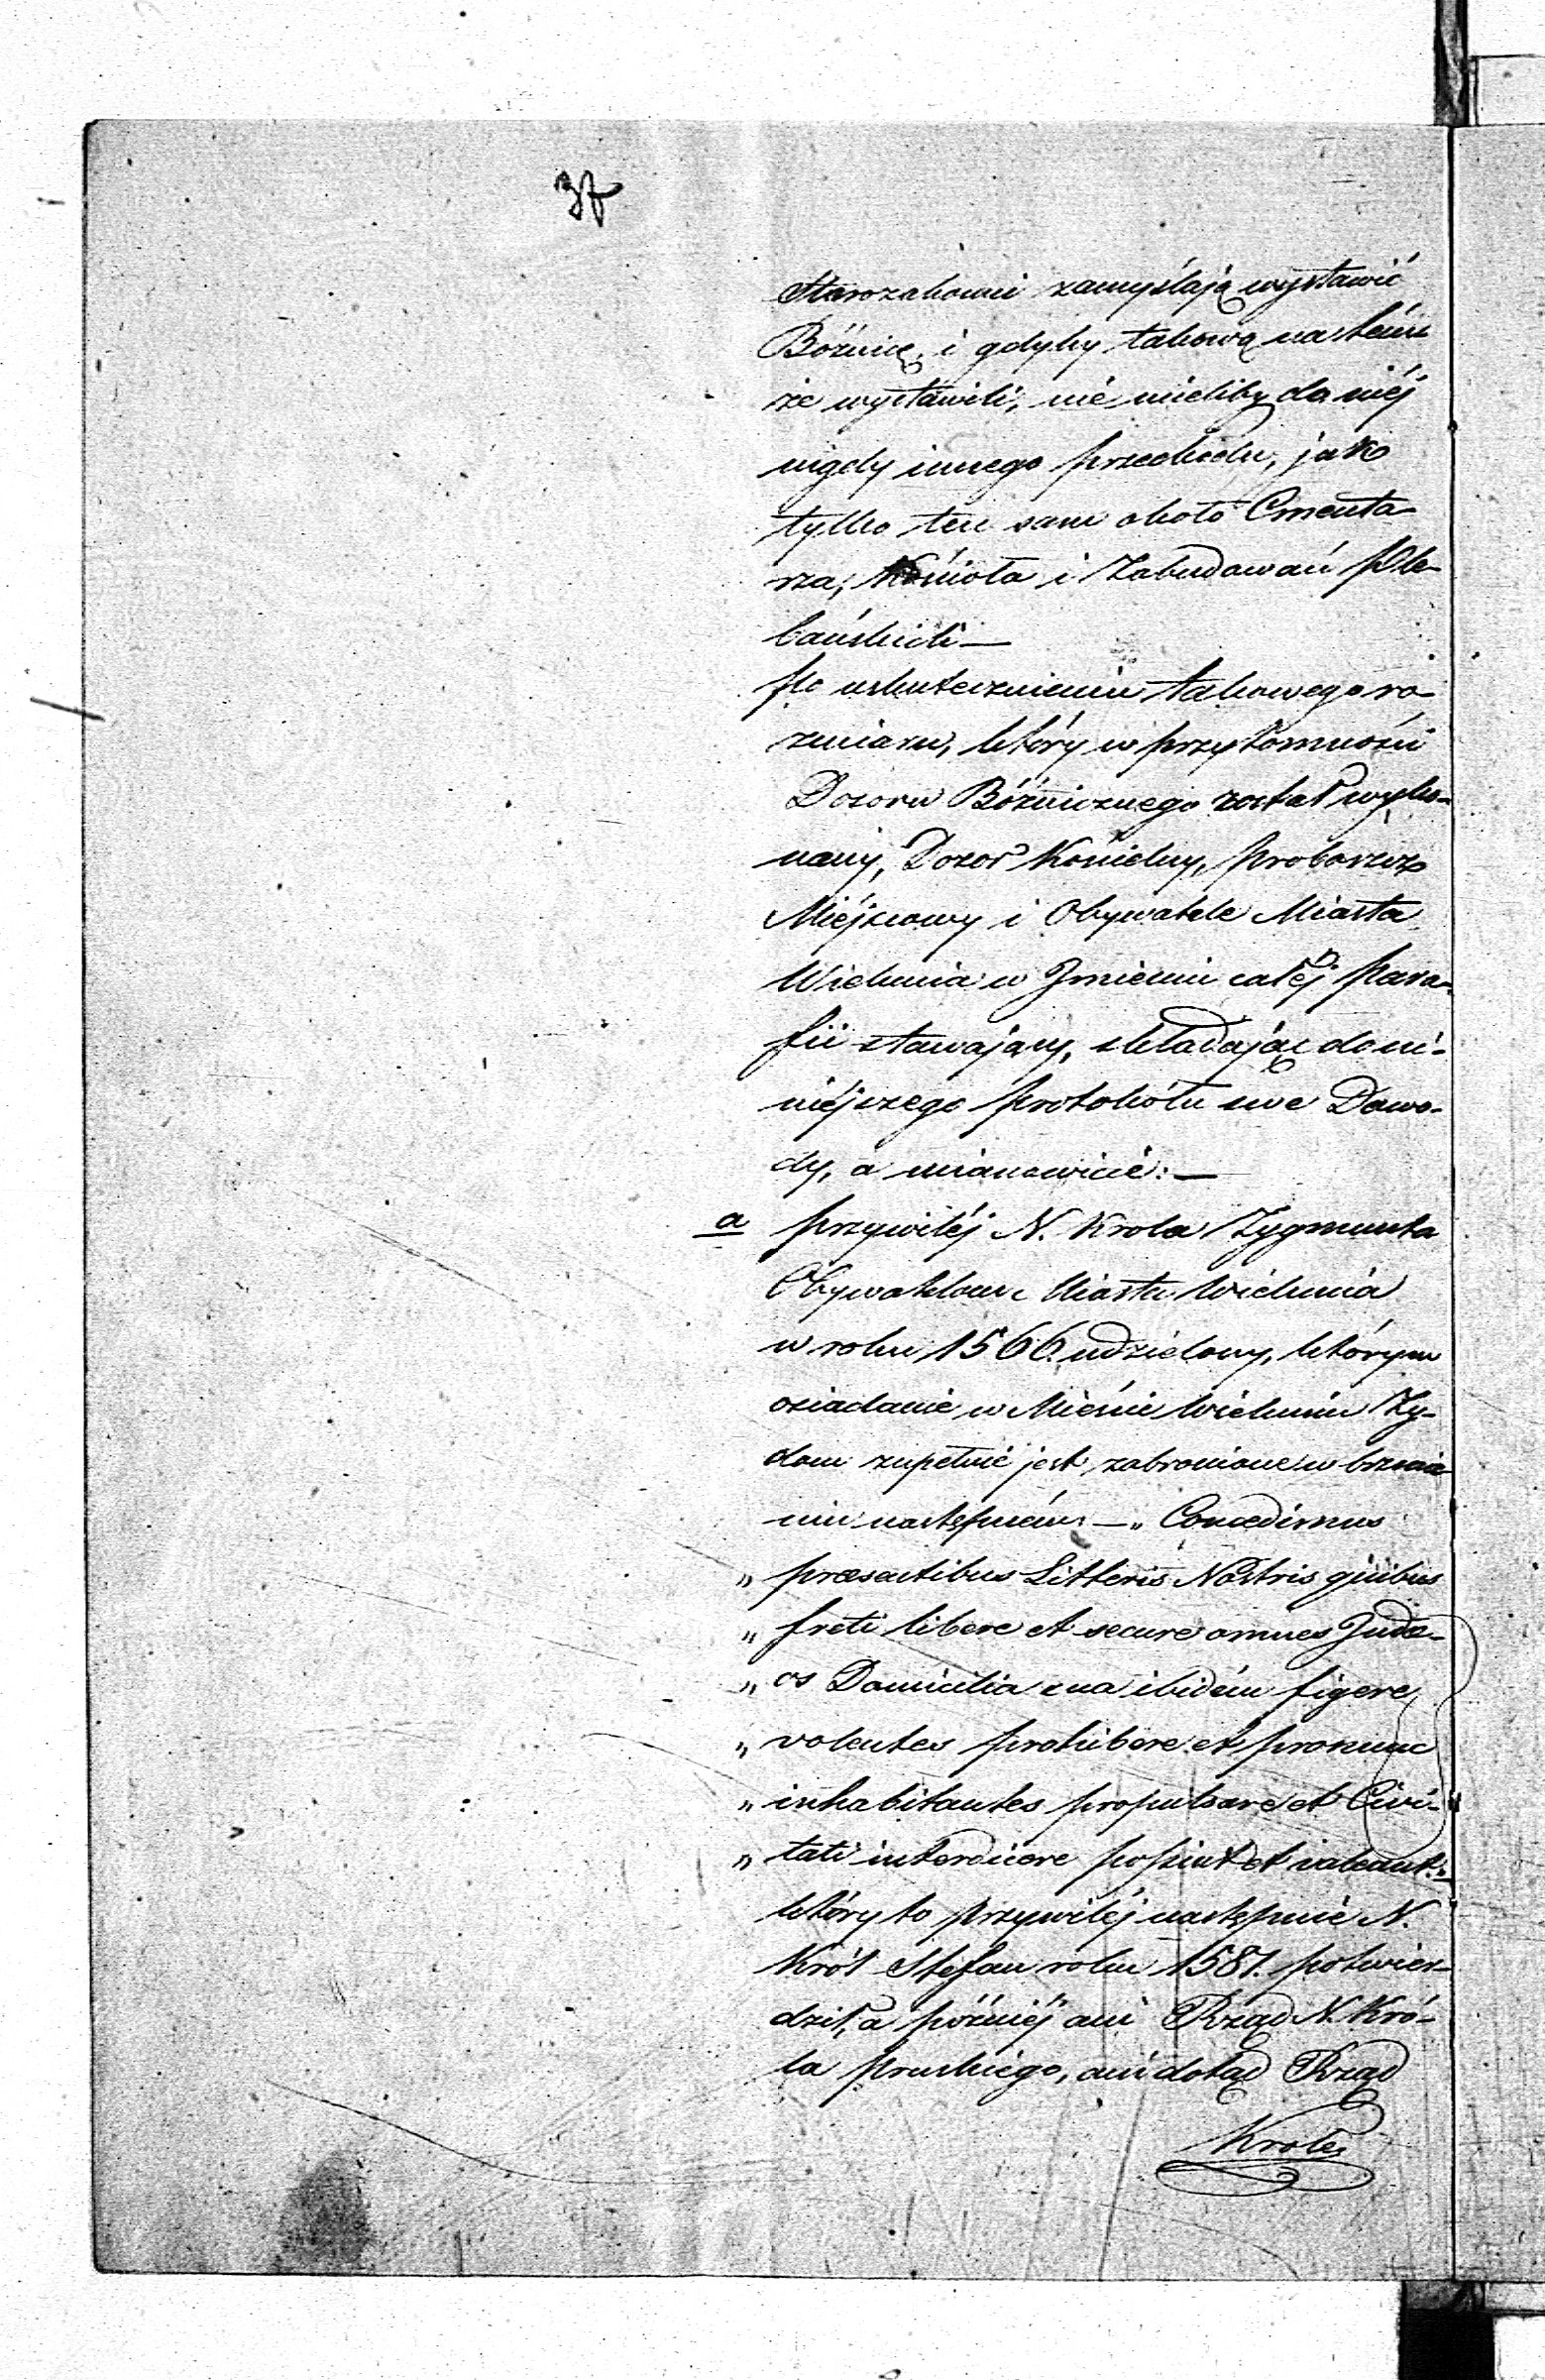 37
Starozakonni zamyślają wystawić
Bóżnicę, i gdyby takową na tém
że wystawili, nie mieliby do niéj
nigdy innego przechodu, jako
tylko ten sam około Cmenta-
rza, Kościoła i Zabudowań Ple-
bańskich —
Po uskutecznieniu takowego ro-
zmiaru, który w przytomności
Dozoru Bóżniczego został wyko-
nany, Dozór Kościelny, Proboszcz
Miéjscowy i Obywatele Miasta
Wielunia w Jmieniu całéj Para-
fii stawający, składając do ni-
niéjszego Protokółu swe Dowo-
dy, a mianowicie: —
a Przywiléj N. Krola Zygmunta
Obywatelom Miasta Wielunia
w roku 1566. udzielony, którym
osiadanie w Mieście Wieluniu Ży-
dom zupełnie jest zabronione w brzmie
niu następném — „Concedimus
„ præsentibus Litteris Nostris quibus
„ freti libere et secure omnes Judæ-
„ os Domicilia sua ibidém figere
„ volentes prohibere et pronunc
„ inhabitantes propulsare et Civi-
„ tati interdicere possint et valeant."
który to Przywiléj następnie N.
Król Stefan roku 1581. potwier-
dził, a późniéj ani Rząd N. Kró-
la Pruskiego, ani dotąd Rząd
Krole